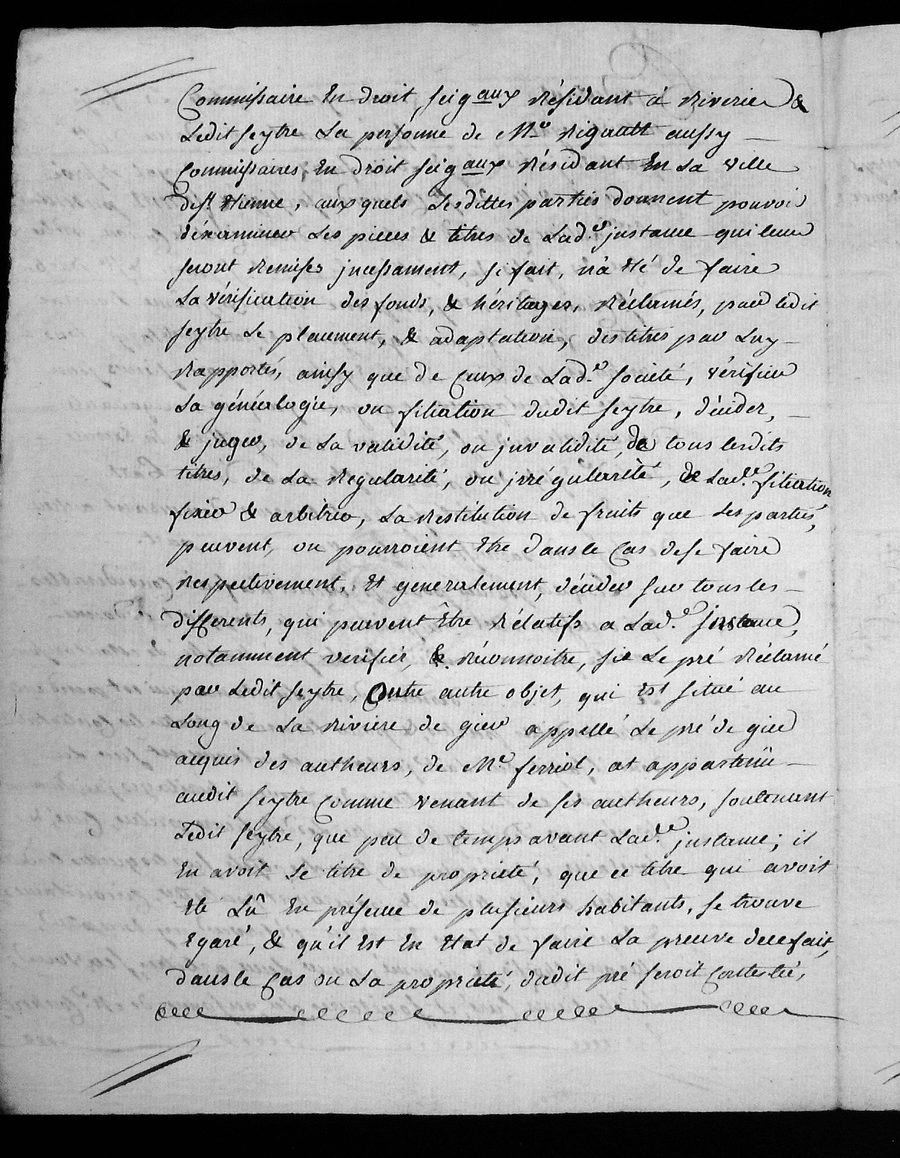 Commissaire En droit, seigaux Résidant à Riverie &
Ledit seytre La personne de Me Rigault aussy
Commissaires, En droit seigaux Résidant En La ville
de st. Etienne, auxquels Lesdittes parties donnent pouvoir
d'éxaminer Les pieces & titres de Lade. justance qui leur
seront Remises jncessament, se fait, n'a été de faire
La vérification des fonds, & héritages, Réclamés, par Ledit
seytre Le placement, & adaptation, des titres par Luy
Rapportés, ainsy que de Ceux de Lade. société, vérifier
La généalogie, ou filiation dudit seytre, décider,
& juger, de La validité, ou jnvalidité, de tous Lesdits
titres, de La Régularité, ou jrrégularité, de Lade. filiation
fixer & arbitrer, La Restitution de fruits que Les parties,
peuvent, ou pourroient Etre dans le Cas de se faire
Respectivement, Et generalement, décider sur tous les
differents, qui peuvent Être Rélatifs a Lade. justance,
notamment verifier, & Réconnoitre, si Le pré Réclamé
par Ledit seytre, Entre autre objet, qui Est situé au
Long de La Rivière de gier appellé Le pré de gier
acquis des autheurs, de Me ferriol, at appartenû
audit seytre Comme venant de ses autheurs, soutenant
Ledit seytre, que peu de temps avant Lade. justance; il
En avoit Le titre de propriété, que ce titre qui avoit
Eté Lû En présence de plusieurs habitants, se trouve
Egaré, & qu'il Est En Etat de faire La preuve de ce fait,
dans le Cas ou La propriété, dudit pré seroit Contestée,